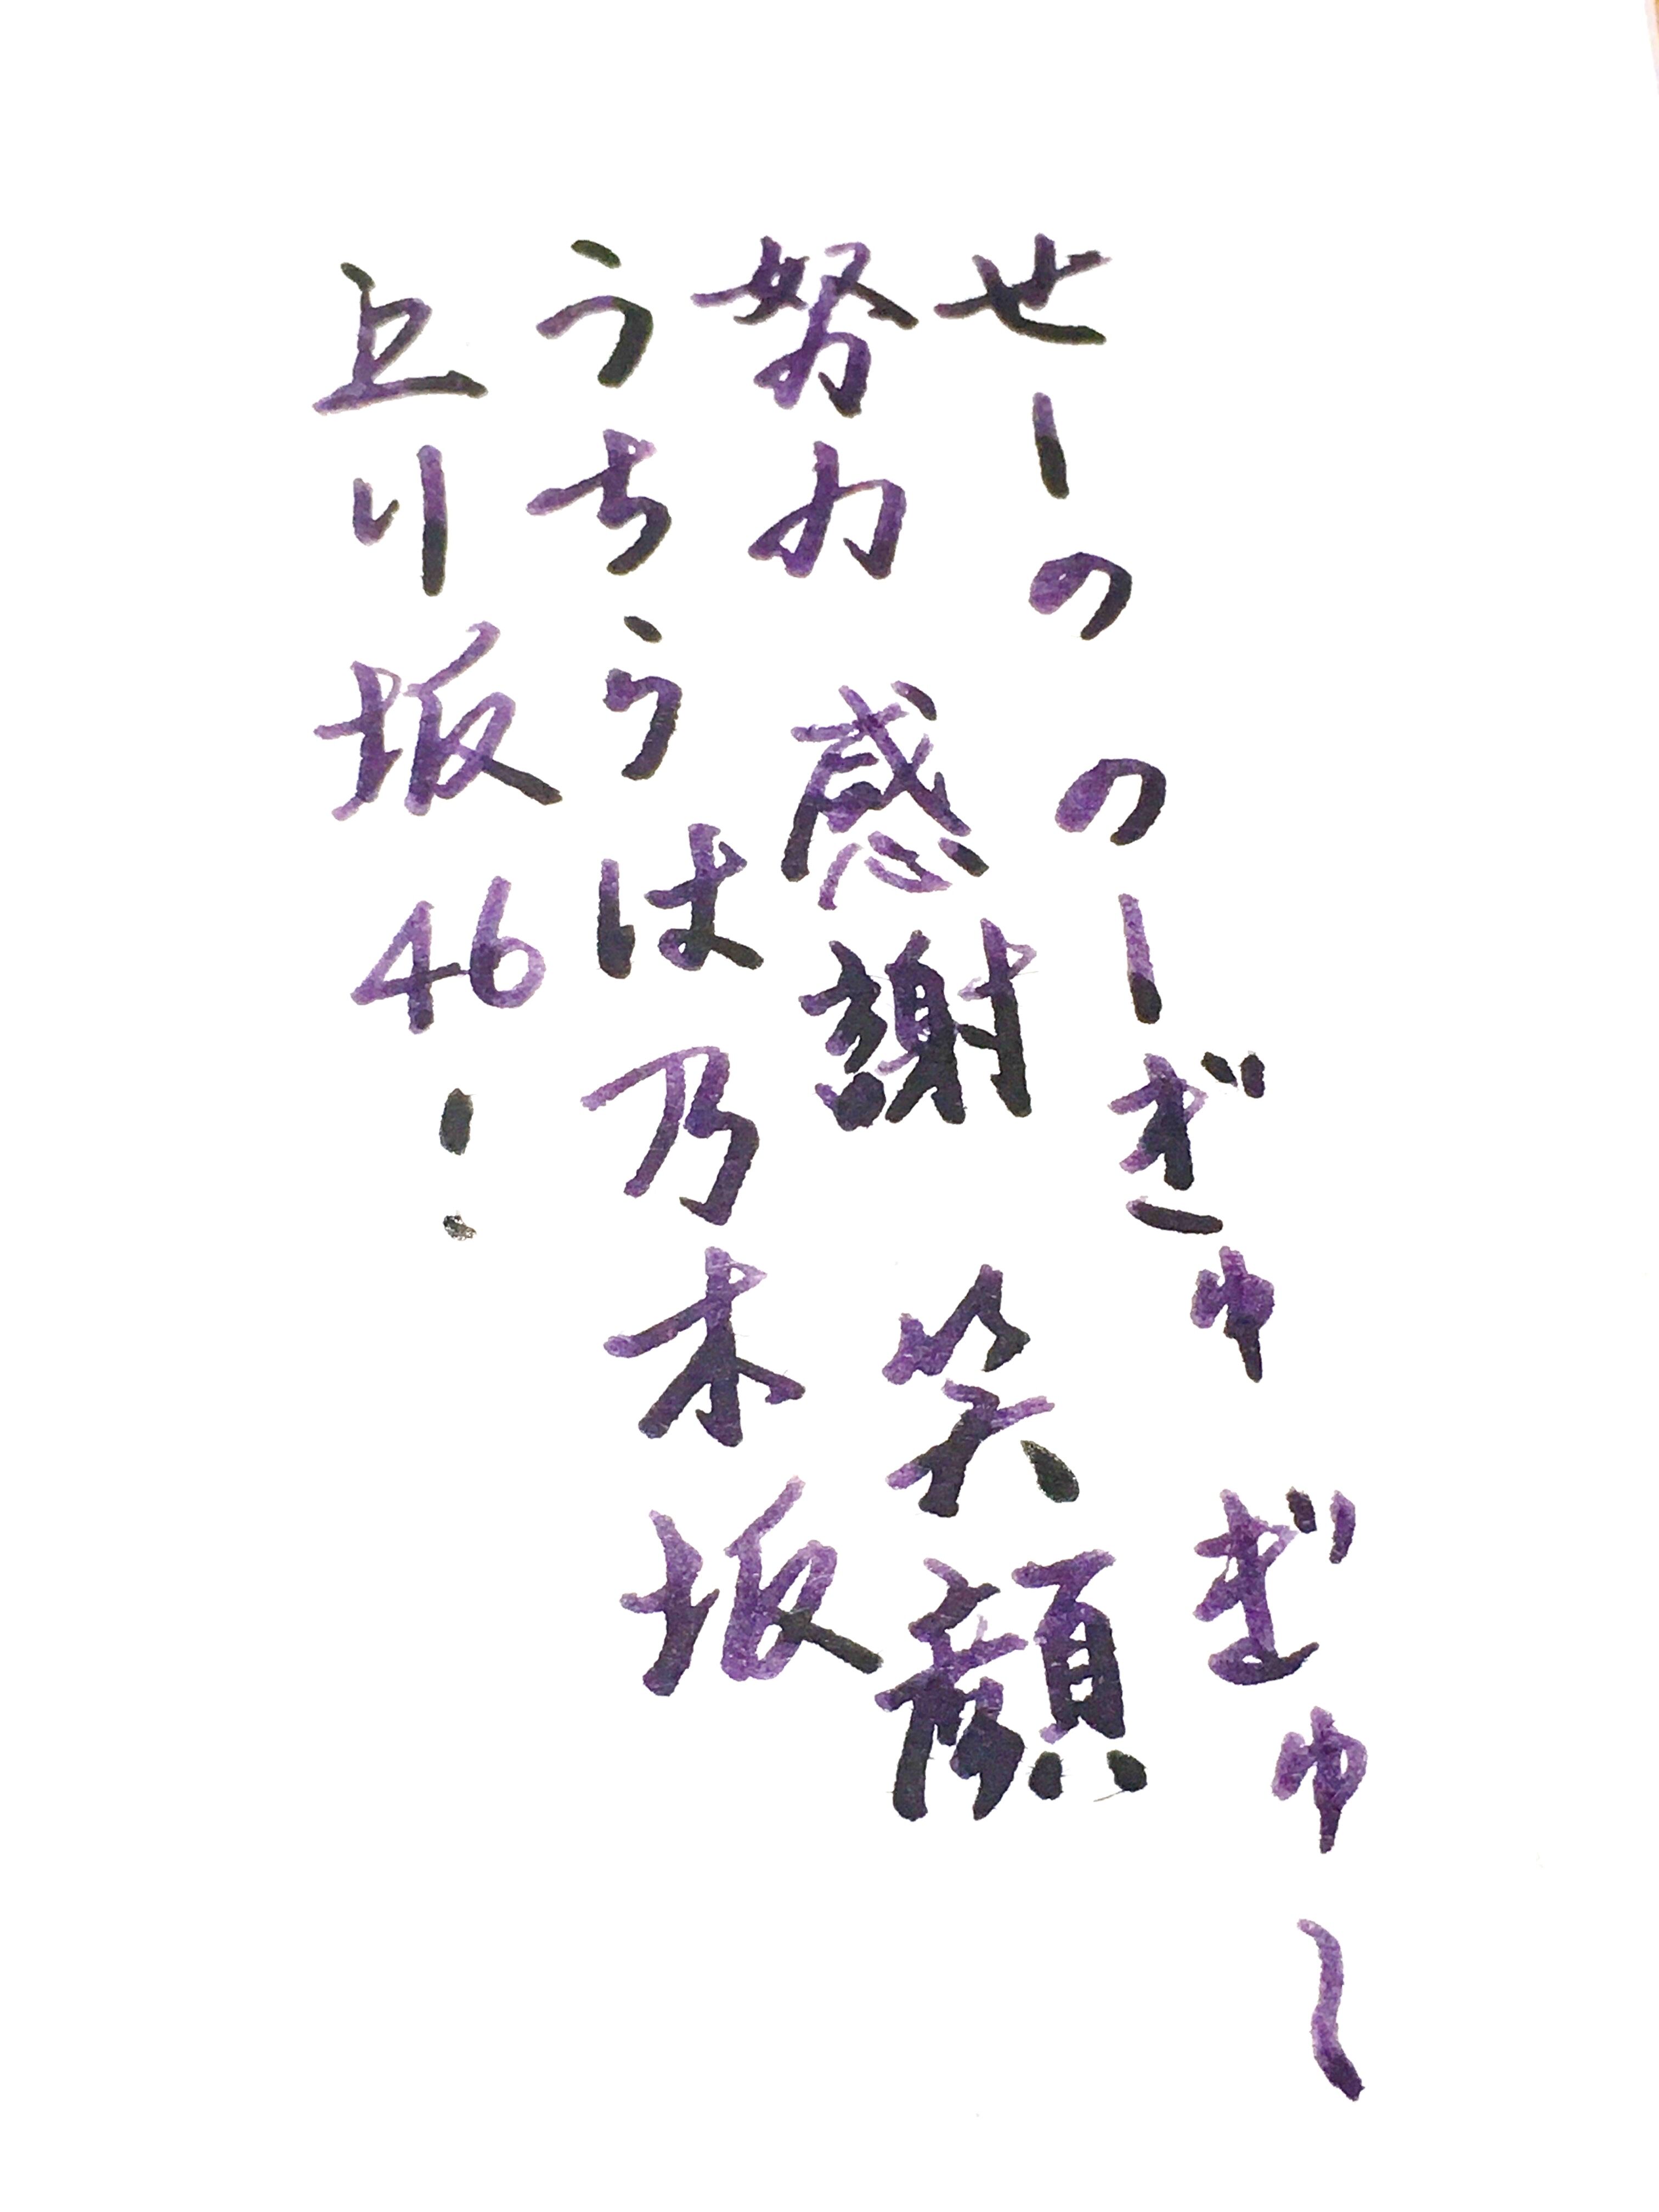 せーの のーぎゅ ぎゅ~
努力 感謝 笑顔
うちらは乃木坂
上り坂46!